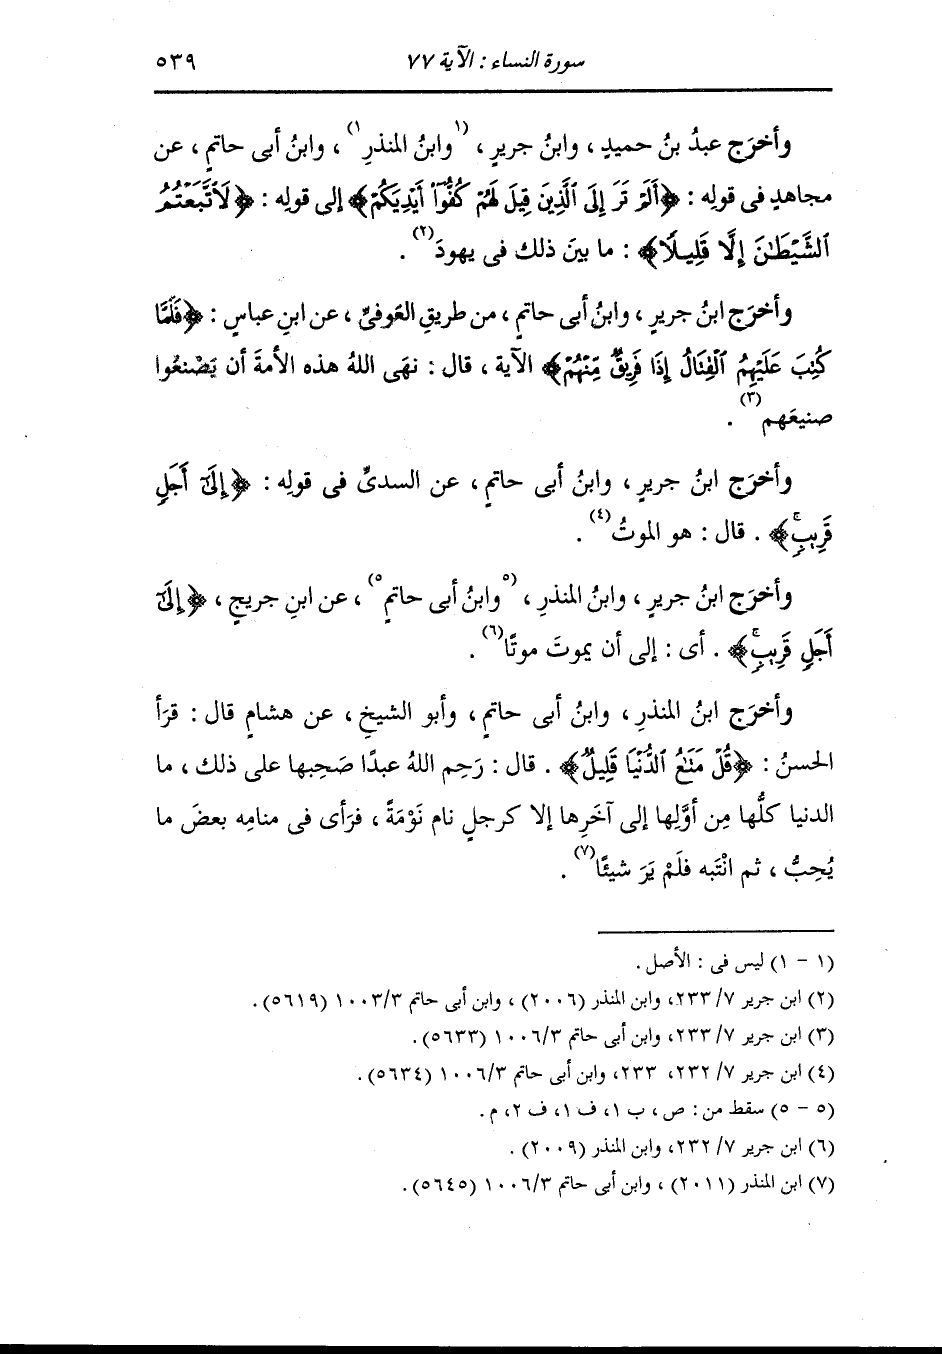 سورة النساء : الآية ٧٧ ٥٣٩
وأخرَج عبدُ بنُ حميدٍ ، وابنُ جريرٍ ، (١وابنُ المنذرِ١) ، وابنُ أبى حاتمٍ ، عن
مجاهدٍ فى قولِه : ﴿أَلَمْ تَرَ إِلَى ٱلَّذِينَ قِيلَ لَهُمْ كُفُّوٓا۟ أَيْدِيَكُمْ﴾ إلى قولِه : ﴿لَٱتَّبَعْتُمُ
ٱلشَّيْطَٰنَ إِلَّا قَلِيلًا﴾ : ما بينَ ذلك فى يهودَ(٢) .
وأخرَج ابنُ جريرٍ ، وابنُ أبى حاتمٍ ، من طريقِ العَوفىِّ ، عن ابنِ عباسٍ : ﴿فَلَمَّا
كُتِبَ عَلَيْهِمُ ٱلْقِتَالُ إِذَا فَرِيقٌ مِّنْهُمْ﴾ الآية ، قال : نهَى اللهُ هذه الأمةَ أن يَصْنعُوا
صنيعَهم(٣) .
وأخرَج ابنُ جريرٍ ، وابنُ أبى حاتمٍ ، عن السدىِّ فى قولِه : ﴿إِلَىٰٓ أَجَلٍ
قَرِيبٍۗ﴾ . قال : هو الموتُ(٤) .
وأخرَج ابنُ جريرٍ ، وابنُ المنذرِ ، (٥وابنُ أبى حاتمٍ٥) ، عن ابنِ جريجٍ ، ﴿إِلَىٰٓ
أَجَلٍ قَرِيبٍۗ﴾ . أى : إلى أن يموتَ موتًا(٦) .
وأخرَج ابنُ المنذرِ ، وابنُ أبى حاتمٍ ، وأبو الشيخِ ، عن هشامٍ قال : قرَأ
الحسنُ : ﴿قُلْ مَتَٰعُ ٱلدُّنْيَا قَلِيلٌ﴾ . قال : رَحِم اللهُ عبدًا صَحِبها على ذلك ، ما
الدنيا كلُّها مِن أوَّلِها إلى آخَرِها إلا كرجلٍ نام نَوْمَةً ، فرَأى فى منامِه بعضَ ما
يُحِبُّ ، ثم انْتَبه فلَمْ يَرَ شيئًا(٧) .
(١ - ١) ليس فى : الأصل .
(٢) ابن جرير ٧/ ٢٣٣، وابن المنذر (٢٠٠٦) ، وابن أبى حاتم ١٠٠٣/٣ (٥٦١٩) .
(٣) ابن جرير ٧/ ٢٣٣، وابن أبى حاتم ١٠٠٦/٣ (٥٦٣٣) .
(٤) ابن جرير ٧/ ٢٣٢، ٢٣٣، وابن أبى حاتم ١٠٠٦/٣ (٥٦٣٤) .
(٥ - ٥) سقط من : ص ، ب ١، ف ١، ف ٢، م .
(٦) ابن جرير ٧/ ٢٣٢، وابن المنذر (٢٠٠٩) .
(٧) ابن المنذر (٢٠١١) ، وابن أبى حاتم ١٠٠٦/٣ (٥٦٤٥) .